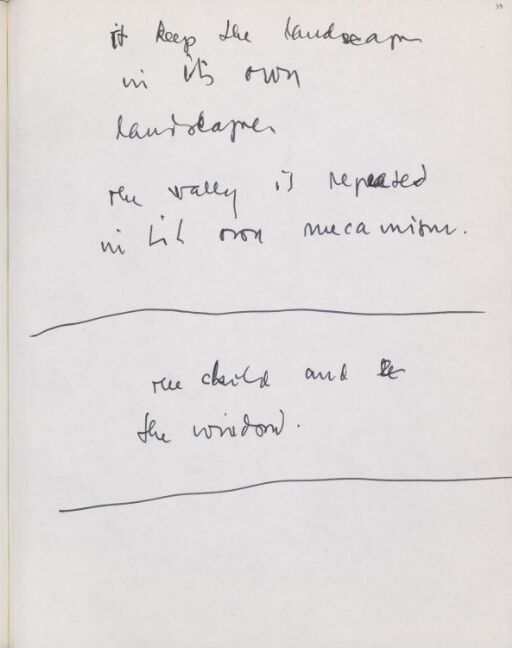 39
it keep the landscape
in its own
landscape,
the vally is repeated
in his own mecanism.
the child and
the window.